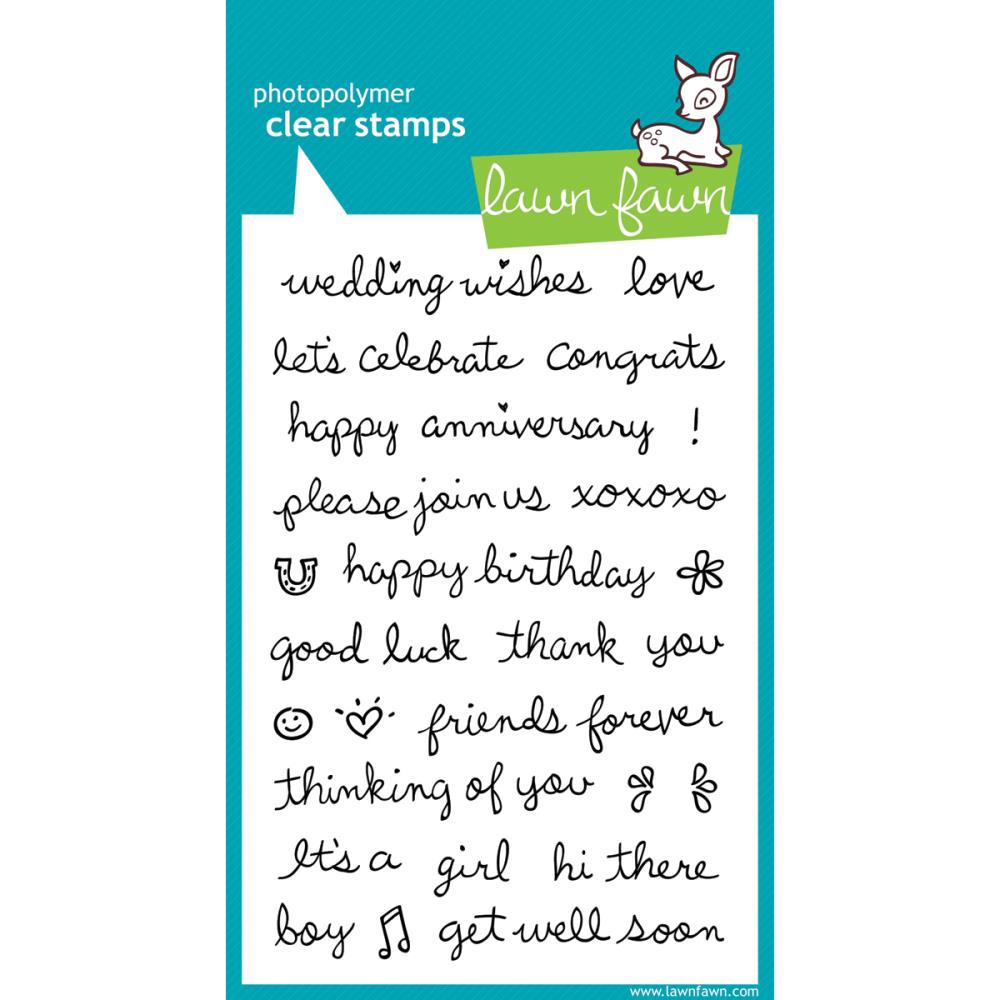 photopolymer
clear stamps
lawn fawn
wedding wishes love
let's celebrate congrats
happy anniversary !
please join us xoxoxo
happy birthday
good luck thank you
friends forever
thinking of you
It's a girl hi there
boy get well soon
www.lawnfawn.com